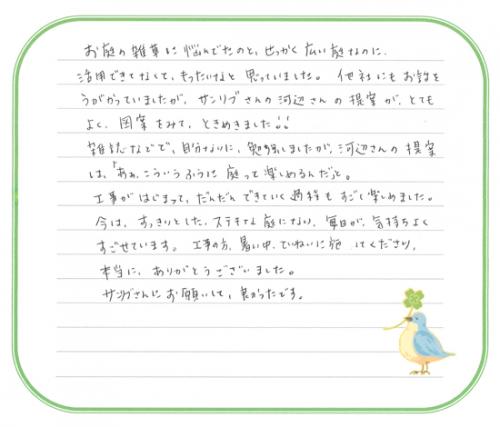 お庭の雑草に悩んでたのと、せっかく広い庭なのに、
活用できてなくて、もったいなと思っていました。他社にもお話を
うかがっていましたが、サンリブさんの河辺さんの提案が、とても
よく、図案をみて、ときめきました!!
雑誌などで、自分なりに、勉強しましたが、河辺さんの提案
は、「あぁ、こういうふうに庭って楽しめるんだ」と。
工事がはじまって、だんだんできていく過程もすごく楽しめました。
今は、すっきりとした、ステキな庭になり、毎日が、気持ちよく
すごせています。工事の方、暑い中、ていねいに施 してくださり、
本当に、ありがとうございました。
サンリブさんにお願いして、良かったです。